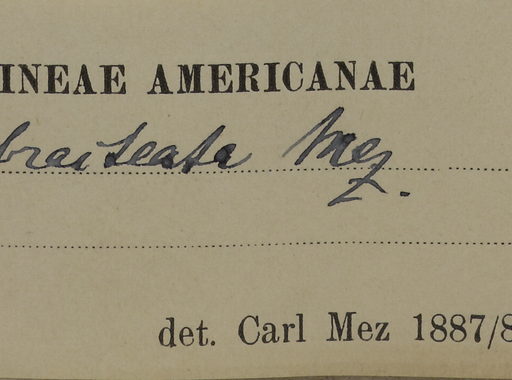 INEAE AMERICANAE
bracteata Mez.
det. Carl Mez 1887/8